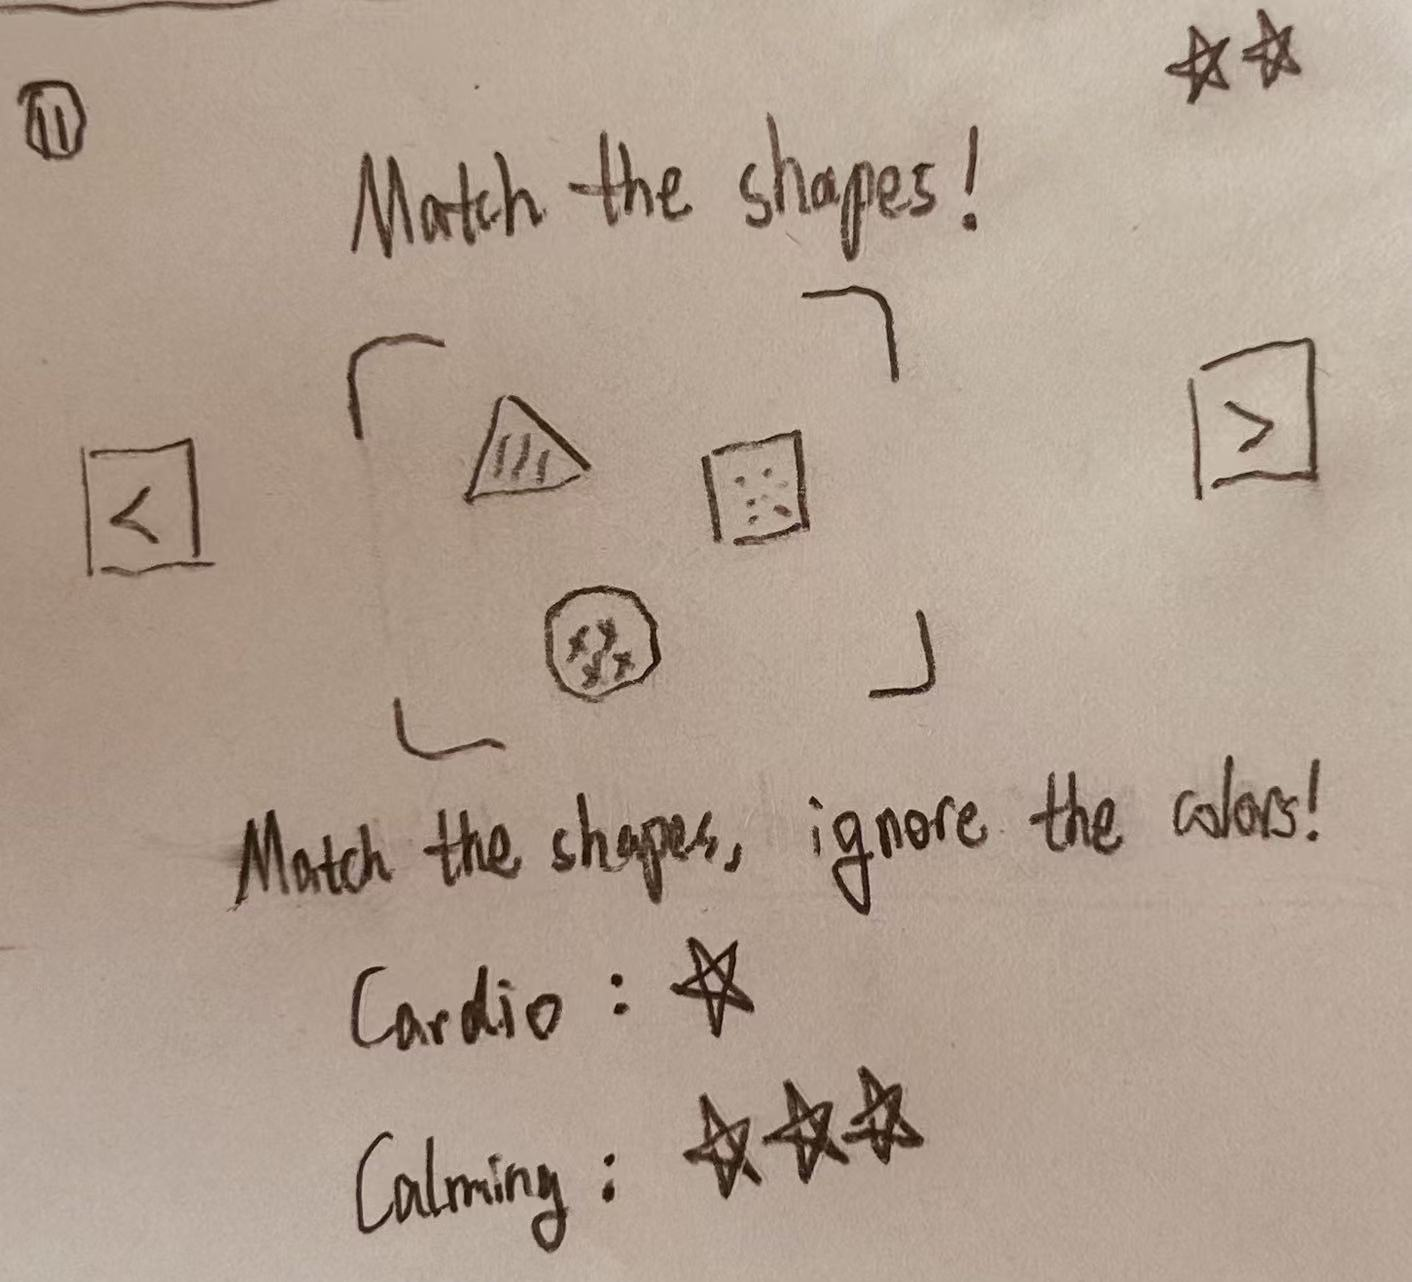 Match the shapes!
<
>
Match the shapes, ignore the colors!
Cardio :
Calming :